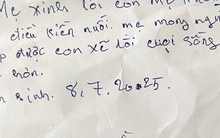 ẹ xinh lỗi con mẹ kh
điều kiện nuôi. mẹ mong ng
p được con xẽ lôi cuọi sống
hơn.
n sinh. 8, 7. 2025.